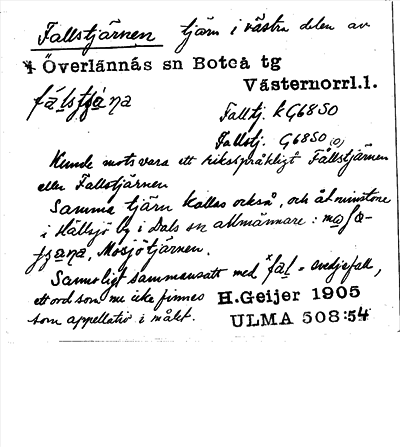 Fallstjärnen tjärn i västra delen av
Överlännäs sn Boteå tg
Västernorrl.l.
Falltj. k G6850
Fallstj. G6850 (o)
Kunde motsvara ett riksspråkligt Fållstjärnen
eller Fallstjärnen
Samma tjärn kallas också, och åtminstone
i Hällsjö by i Dals sn allmännare:
Mosjötjärnen.
Sannolikt sammansatt med *fal = svedjefall,
ett ord som nu icke finnes
som appellativ i målet.
H.Geijer 1905
ULMA 508:54